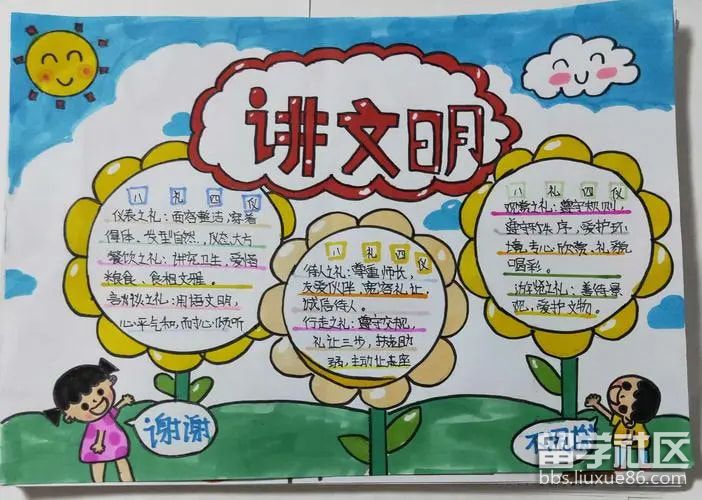 讲文明
八礼四仪
仪表之礼：面容整洁，穿着
得体、发型自然，仪态大方
餐饮之礼：讲究卫生，爱惜
粮食、食相文雅。
言谈之礼：用语文明，
心平气和，耐心倾听
八礼四仪
待人之礼：尊重师长，
友爱伙伴、宽容礼让
诚信待人。
行走之礼：遵守交规，
礼让三步，扶老助
弱，主动让座
八礼四仪
观赏之礼：遵守规则，
遵守秩序，爱护环
境，专心欣赏、礼貌
喝彩。
游览之礼：善待景
观，爱护文物。
谢谢
留学社区
bbs.liuxue86.com